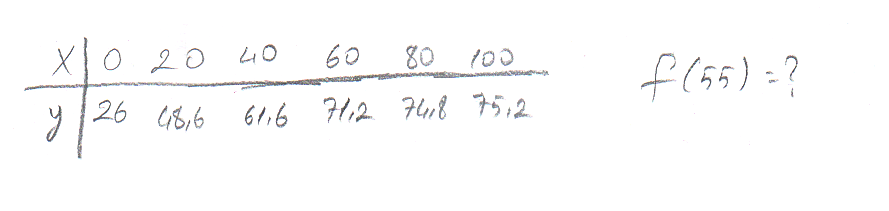 x 0 20 40 60 80 100 f(55)=?
y 26 48,6 61,6 71,2 74,8 75,2